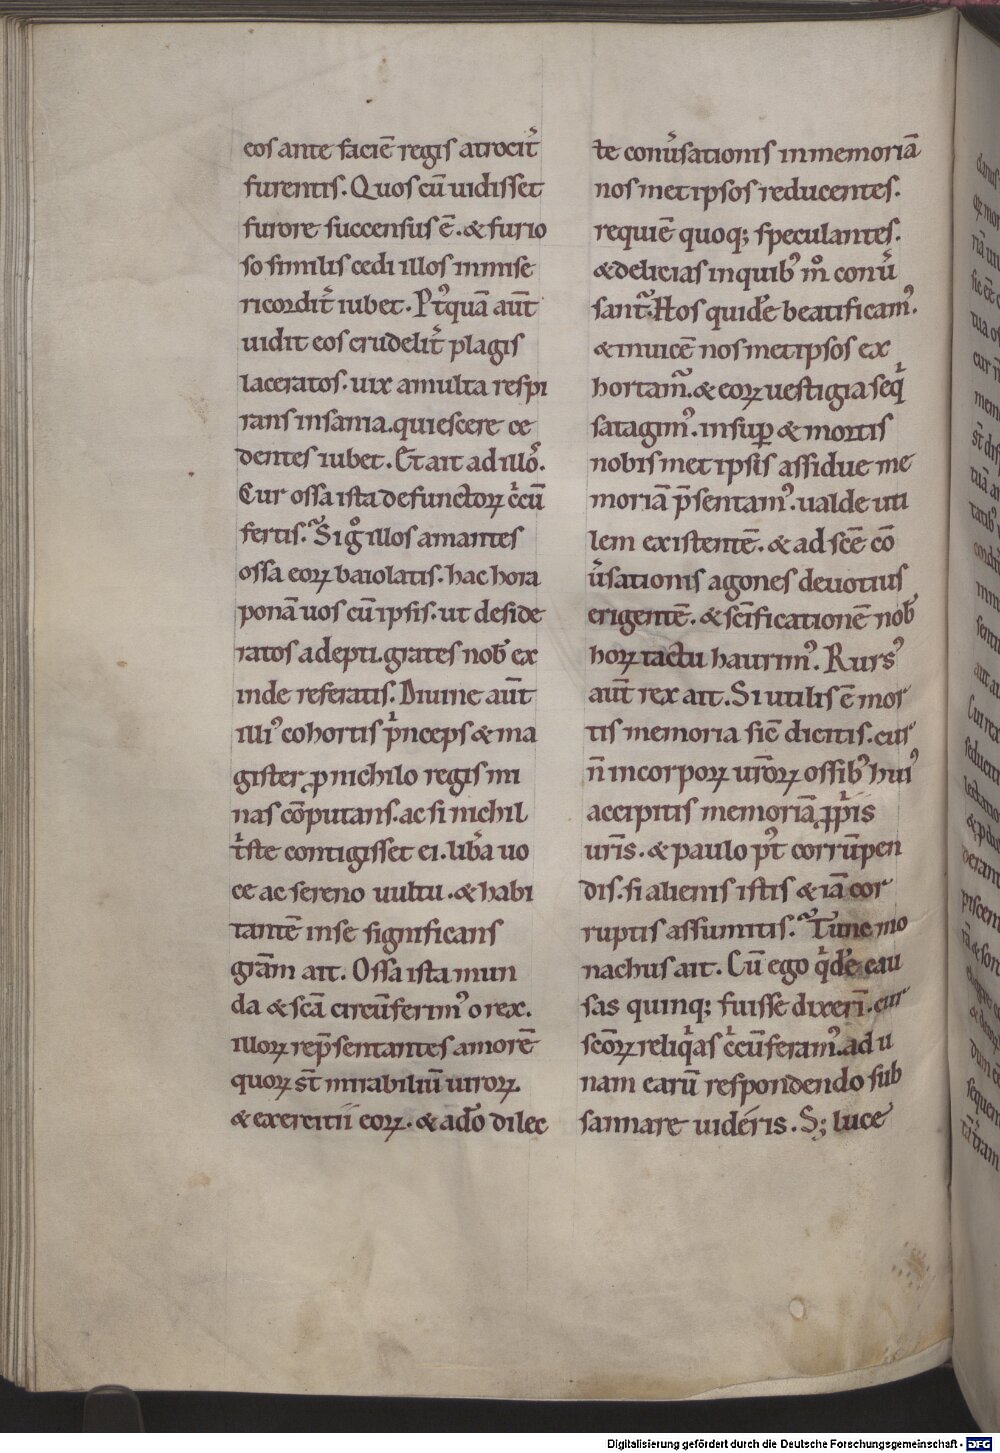 eos ante faciē regis atrocit̉
furentis. Quos cū uidisset
furore succensus ē. & furio
so similis cedi illos inmise
ricordit̉ iubet. Pt̉quā aūt
uidit eos crudelit̉ plagis
laceratos. uix a multa respi
rans insania. quiescere ce
dentes iubet. Et ait ad illo᷒.
Cur ossa ista defunctoꝝ c̉cū
fertis. Sig̊ illos amantes
ossa eoꝝ baiolatis. hac hora
ponā uos cū ipsis. ut deside
ratos adepti. grates nob̉ ex
inde referatis. Diuine aūt
illi᷒ cohortis p̉nceps & ma
gister ꝓ nichilo regis mi
nas cōputans. ac si nichil
t̉ste contigisset ei. lib̉a uo
ce ac sereno uultu. & habi
tantē in se significans
gr̄am ait. Ossa ista mun
da & sc̄a circūferim᷒ o rex.
illoꝝ rep̄sentantes amorē
quoꝝ st̄ mirabiliū uiroꝝ.
& exercitii eoꝝ. & ad̄o dilec
te conủsationis in memoriā
nosmet ipsos reducentes.
requiē quoq; speculantes.
& delicias in quib᷒ m̊ conủ
sant̉. Hos quid̄e beatificam᷒.
& inuicē nosmet ipsos ex
hortam̉. & eoꝝ uestigia seq̉
satagim᷒. insuꝑ & mortis
nobismet ipsis assidue me
moriā p̄sentam᷒. ualde uti
lem existentē. & ad sc̄e cō
ủsationis agones deuotius
erigentē. & sc̄ificationē nob̉
hoꝝ tactu haurim᷒. Rurs᷒
aūt rex ait. Si utilis ē mor
tis memoria sic̄ dicitis. cur
n̄ in corpoꝝ ur̄oꝝ ossib᷒ hui᷒
accipitis memoriā ꝓp̉iis
ur̄is. & paulo pt̉ corrūpen
dis. si alienis istis & iā cor
ruptis assumitis. Tunc mo
nachus ait. Cū ego q̉d̄e cau
sas quinq; fuisse dixerī. cur
sc̄oꝝ reliq̉as c̉cūferam᷒. ad u
nam earū respondendo sub
sannare uideris. S; luce
Digitalisierung gefördert durch die Deutsche Forschungsgemeinschaft - DFG